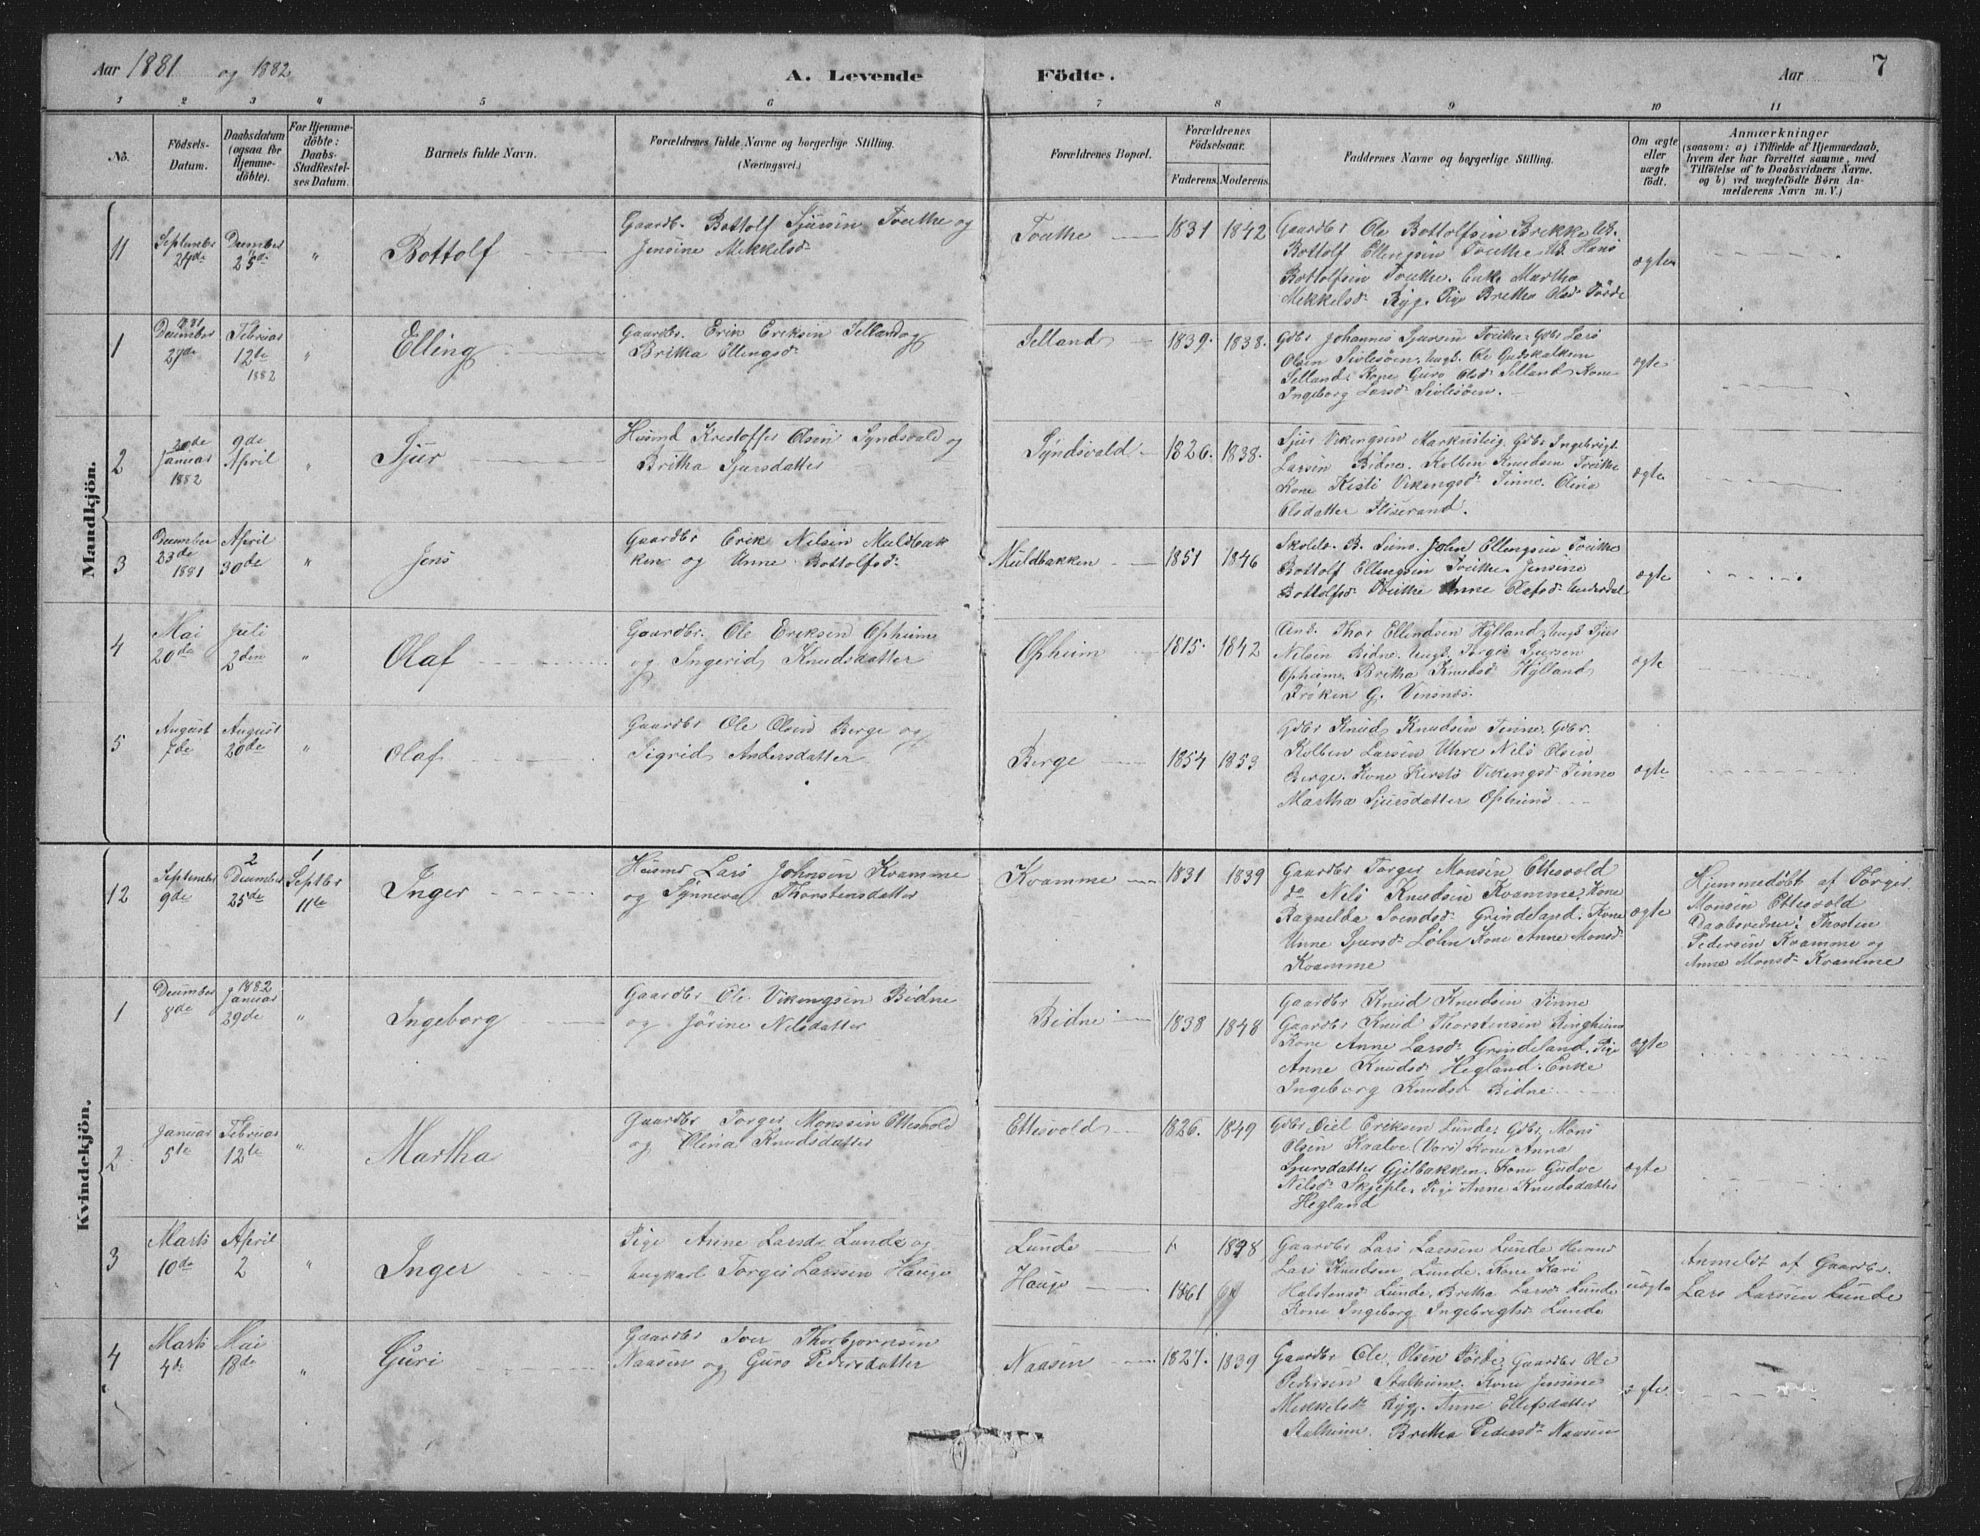 Aar 1881 og 1882 A. Levende Födte. Aar 7
1 2 3 4 5 6 7 8 9 10 11
No.
Födsels-
Datum.
Daabsdatum
(ogsaa for
Hjemme-
döbte).
For Hjemme-
döbte:
Daabs-
Stadfæstel-
ses Datum.
Barnets fulde Navn.
Forældrenes fulde Navne og borgerlige Stilling.
(Næringsvei.)
Forældrenes Bopæl.
Forældrenes
Födselsaar.
Faderens. Moderens.
Faddernes Navne og borgerlige Stilling.
Om ægte
eller
uægte
födt.
Anmærkninger
(saasom: a) i Tilfælde af Hjemmedaab,
hvem der har forrettet samme, med
Tilföielse af to Daabsvidners Navne.
og b) ved uægtefödte Börn An-
melderens Navn m. V.)
Mandkjön.
11
September
24de
December
25de
"
Bottolf
Gaardbr. Bottolf Sjursen Tvithe og
Jensine Mikkelsd
Tvithe
1831 1842
Gaardbr Ole Bottolfsen Brekke
Bottolf Ellingsen Tvithe Hans
Bottolfsen Tvithe. Enke Martha
Mikkelsd. Ryg. Pige Britha Olsd. Förde
ægte
1
1881
December
27de
Februar
12te
1882
"
Elling
Gaardbr. Erik Eriksen Selland og
Britha Ellingsd.
Selland
1839. 1838.
Gdbr Johannes Sjursen Tvithe, Gdbr Lars
Olsen Sivlesöen, Ungk. Ole Gudskalksen
Selland, Kone Guro Olsd Selland, Kone
Ingeborg Larsd. Sivlesöen.
ægte
2
20de
Januar
1882
9de
April
"
Sjur
Husmd Kristoffer Olsen Syndsvald og
Britha Sjursdatter
Syndsvald
1826. 1838.
Sjur Vikingsen Gdbr Ingebrigt
Larsen Bidne. Kolben Knudsen Tvithe
Kone Kisti Vikingsd. Tinne. Olina
Olsdatter
ægte
3
December
23de
1881
April
30de
"
Jens
Gaardbr Erik Nilsen Muldbak
ken og Unne Bottolfsd.
Muldbakken
1851 1846
Skolel. B. John Ellingsen Tvithe
Bottolf Ellingsen Tvithe. Jensine
Bottolfsd. Tvithe Anne Olafsd.
ægte
4
Mai
20de
Juli
2den
"
Olaf
Gaardbr. Ole Eriksen Opheim
og Ingerid Knudsdatter
Opheim
1815. 1842
Thor Ellendsen Hylland, Ungk. Sjur
Nilsen Bidne. Ungk. Torgis Sjursen
Opheim. Britha Knudsd Hylland
Fröken G. Vinsnes.
ægte
5
August
7de
August
20de
"
Olaf
Gaardbr Ole Olsen Berge og
Sigrid Andersdatter
Berge
1854 1853
Gdbr Knud Knudsen Tinne, Gdbr.
Kolben Larsen Uhre Nils Olsen
Berge. Kone Kirsti Vikingsd. Tinne
Martha Sjursdatter Opheim
ægte
Kvindekjön.
12
September
9de
2
December
25de
1
Septbr
11te
Inger
Husmd Lars Johnsen Kvamme
og Synneva Thorstensdatter
Kvamme
1831 1839
Gaardbr Torger Monsen Ettesvold
do Nils Knudsen Kvamme, Kone
Ragnilda Svendsd. Grindeland. Kone
Unne Sjursd. Löhn Kone Anne Monsd.
Kvamme
ægte
Hjemmedöbt af Torger
Monsen Ettesvold
Daabsvidner: Thosten
Pedersen Kvamme og
Anne Monsd. Kvamme
1
December
8de
1882
Januar
29de
"
Ingeborg
Gaardbr Ole Vikingsen Bidne
og Jörine Nilsdatter
Bidne
1838 1848
Gaardbr Knud Knudsen Tinne
Gaardbr Knud Thorstensen Ringheim
Kone Anne Larsd. Grindeland. Pige
Anne Knudsd Hegland. Enke
Ingeborg Knudsd Bidne
ægte
2
Januar
5te
Februar
12te
"
Martha
Gaardbr Torger Monssen Ettesvold
og Olina Knudsdatter
Ettesvold
1826. 1849
Gdbr Eriksen Lunde, Gdbr Mons
Olsen Kvalve (Vors) Kone Anna
Sjursdatter Gjelbakken. Kone Gudve
Nilsd. Skjeple. Pige Anne Knudsdatter
Hegland
ægte
3
Marts
10de
April
2
"
Inger
Pige Anne Larsd. Lunde og
Ungkarl Torgis Larssen Hauge
Lunde
Hauge
1861
Gaardbr Lars Larssen Lunde Husmd
Lars Knudsen Lunde. Kone Kari
Halstensd. Lunde. Britha Larsd. Lunde
Kone Ingeborg Ingebrigtsd. Lunde
uægte
Anmeldt af Gaardbr.
Lars Larssen Lunde
4
Marts
4de
Mai
18de
"
Guri
Gaardbr Iver Thorbjornsen
Naasen og Guro Pedersdatter
Naasen
1827. 1839
Gaardbr Ole Olsen Förde, Gaardbr Ole
Pedersen Stalheim. Kone Jensine
Mikkelsd. Ryg. Anne Ellefsdatter
Stalheim. Britha Pedersd. Naasen
ægte